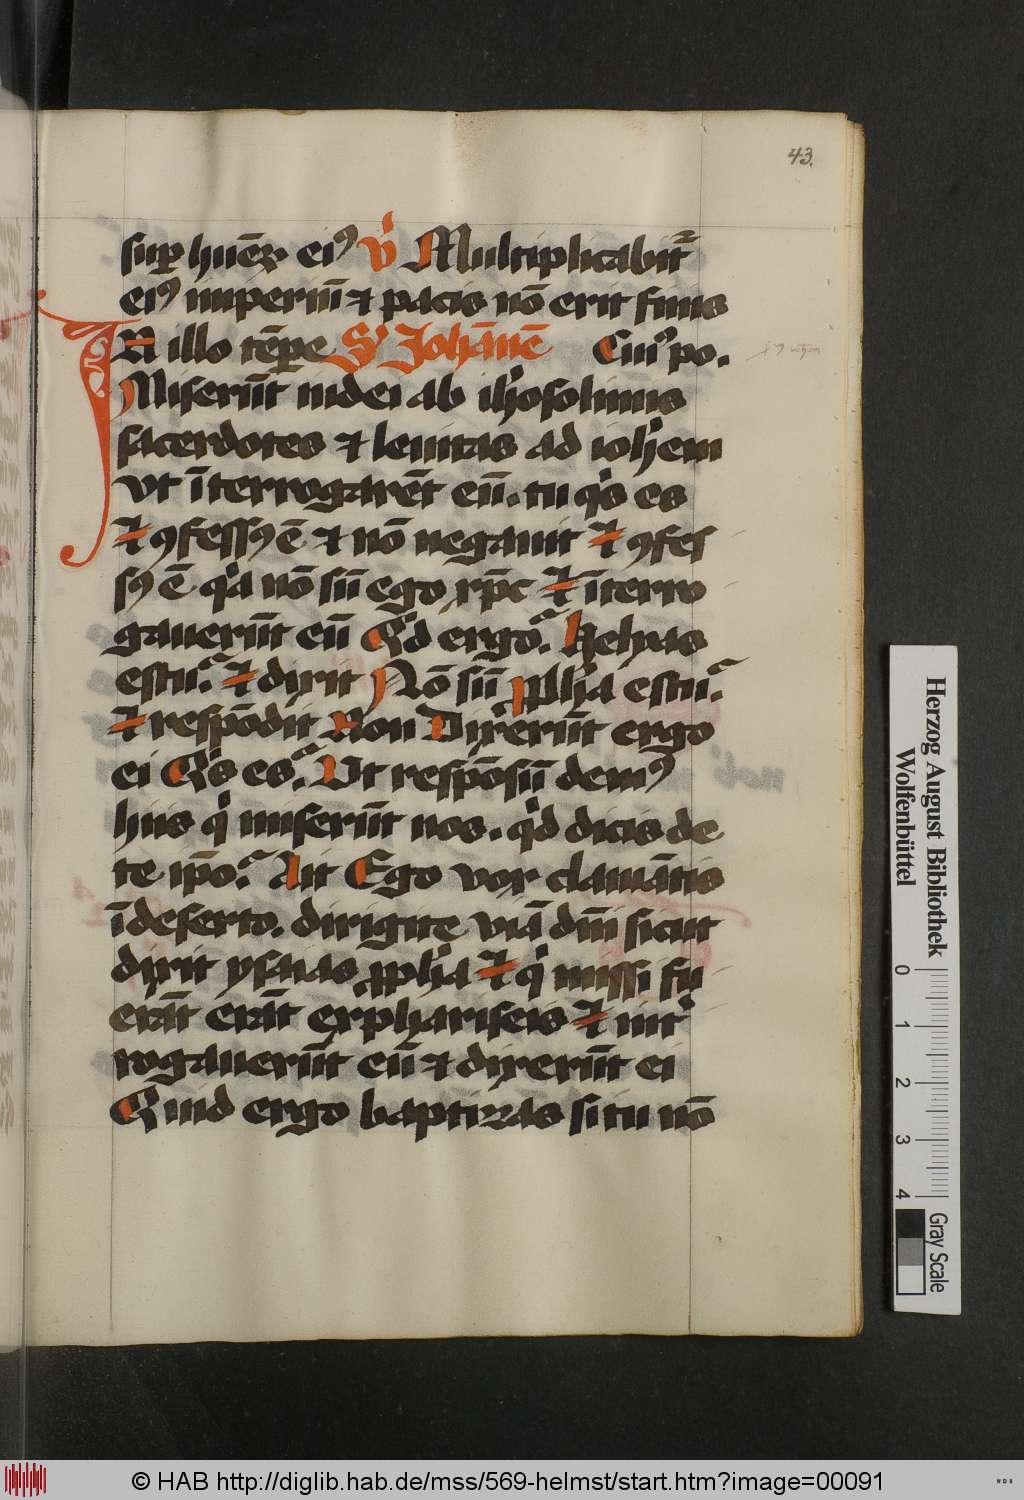 43.
suꝑ huēꝝ eiꝰ ℣ Multiplicabit᷑
eiꝰ imperiū ⁊ pacis nō erit finis
IN illo tēpꝛe S Johānē Cuiꝰ po.
Miserūt iudei ab ihꝰosolimis
sacerdotes ⁊ leuitas ad ioh̄em
vt īterrogarēt eū. tu qͥs es
⁊ ꝯfessꝰ ē ⁊ nō negauit ⁊ ꝯfes
sꝰ ē qͥa nō sū ego xp̄c ⁊ īterro
gauerūt eū Qͥd ergo? Helyas
es tu? ⁊ dixit Nō sū ꝓph̄a es tu?
⁊ respōdit Non Dixerūt ergo
ei Qͥs es? Vt respōsū demꝰ
hiis qͥ miserūt nos. qͥd dicis de
te ip̄o? Ait Ego vox clamātis
ī deserto. dirigite viā dn̄i sicut
dixit ysaias ꝓph̄a ⁊ qͥ missi fu
erāt erāt ex phariseis ⁊ int᷑
rogauerūt eū ⁊ dixerūt ei
Quid ergo baptizas si tu nō
Herzog August Bibliothek
Wolfenbüttel
0 1 2 3 4
Gray Scale
© HAB http://diglib.hab.de/mss/569-helmst/start.htm?image=00091